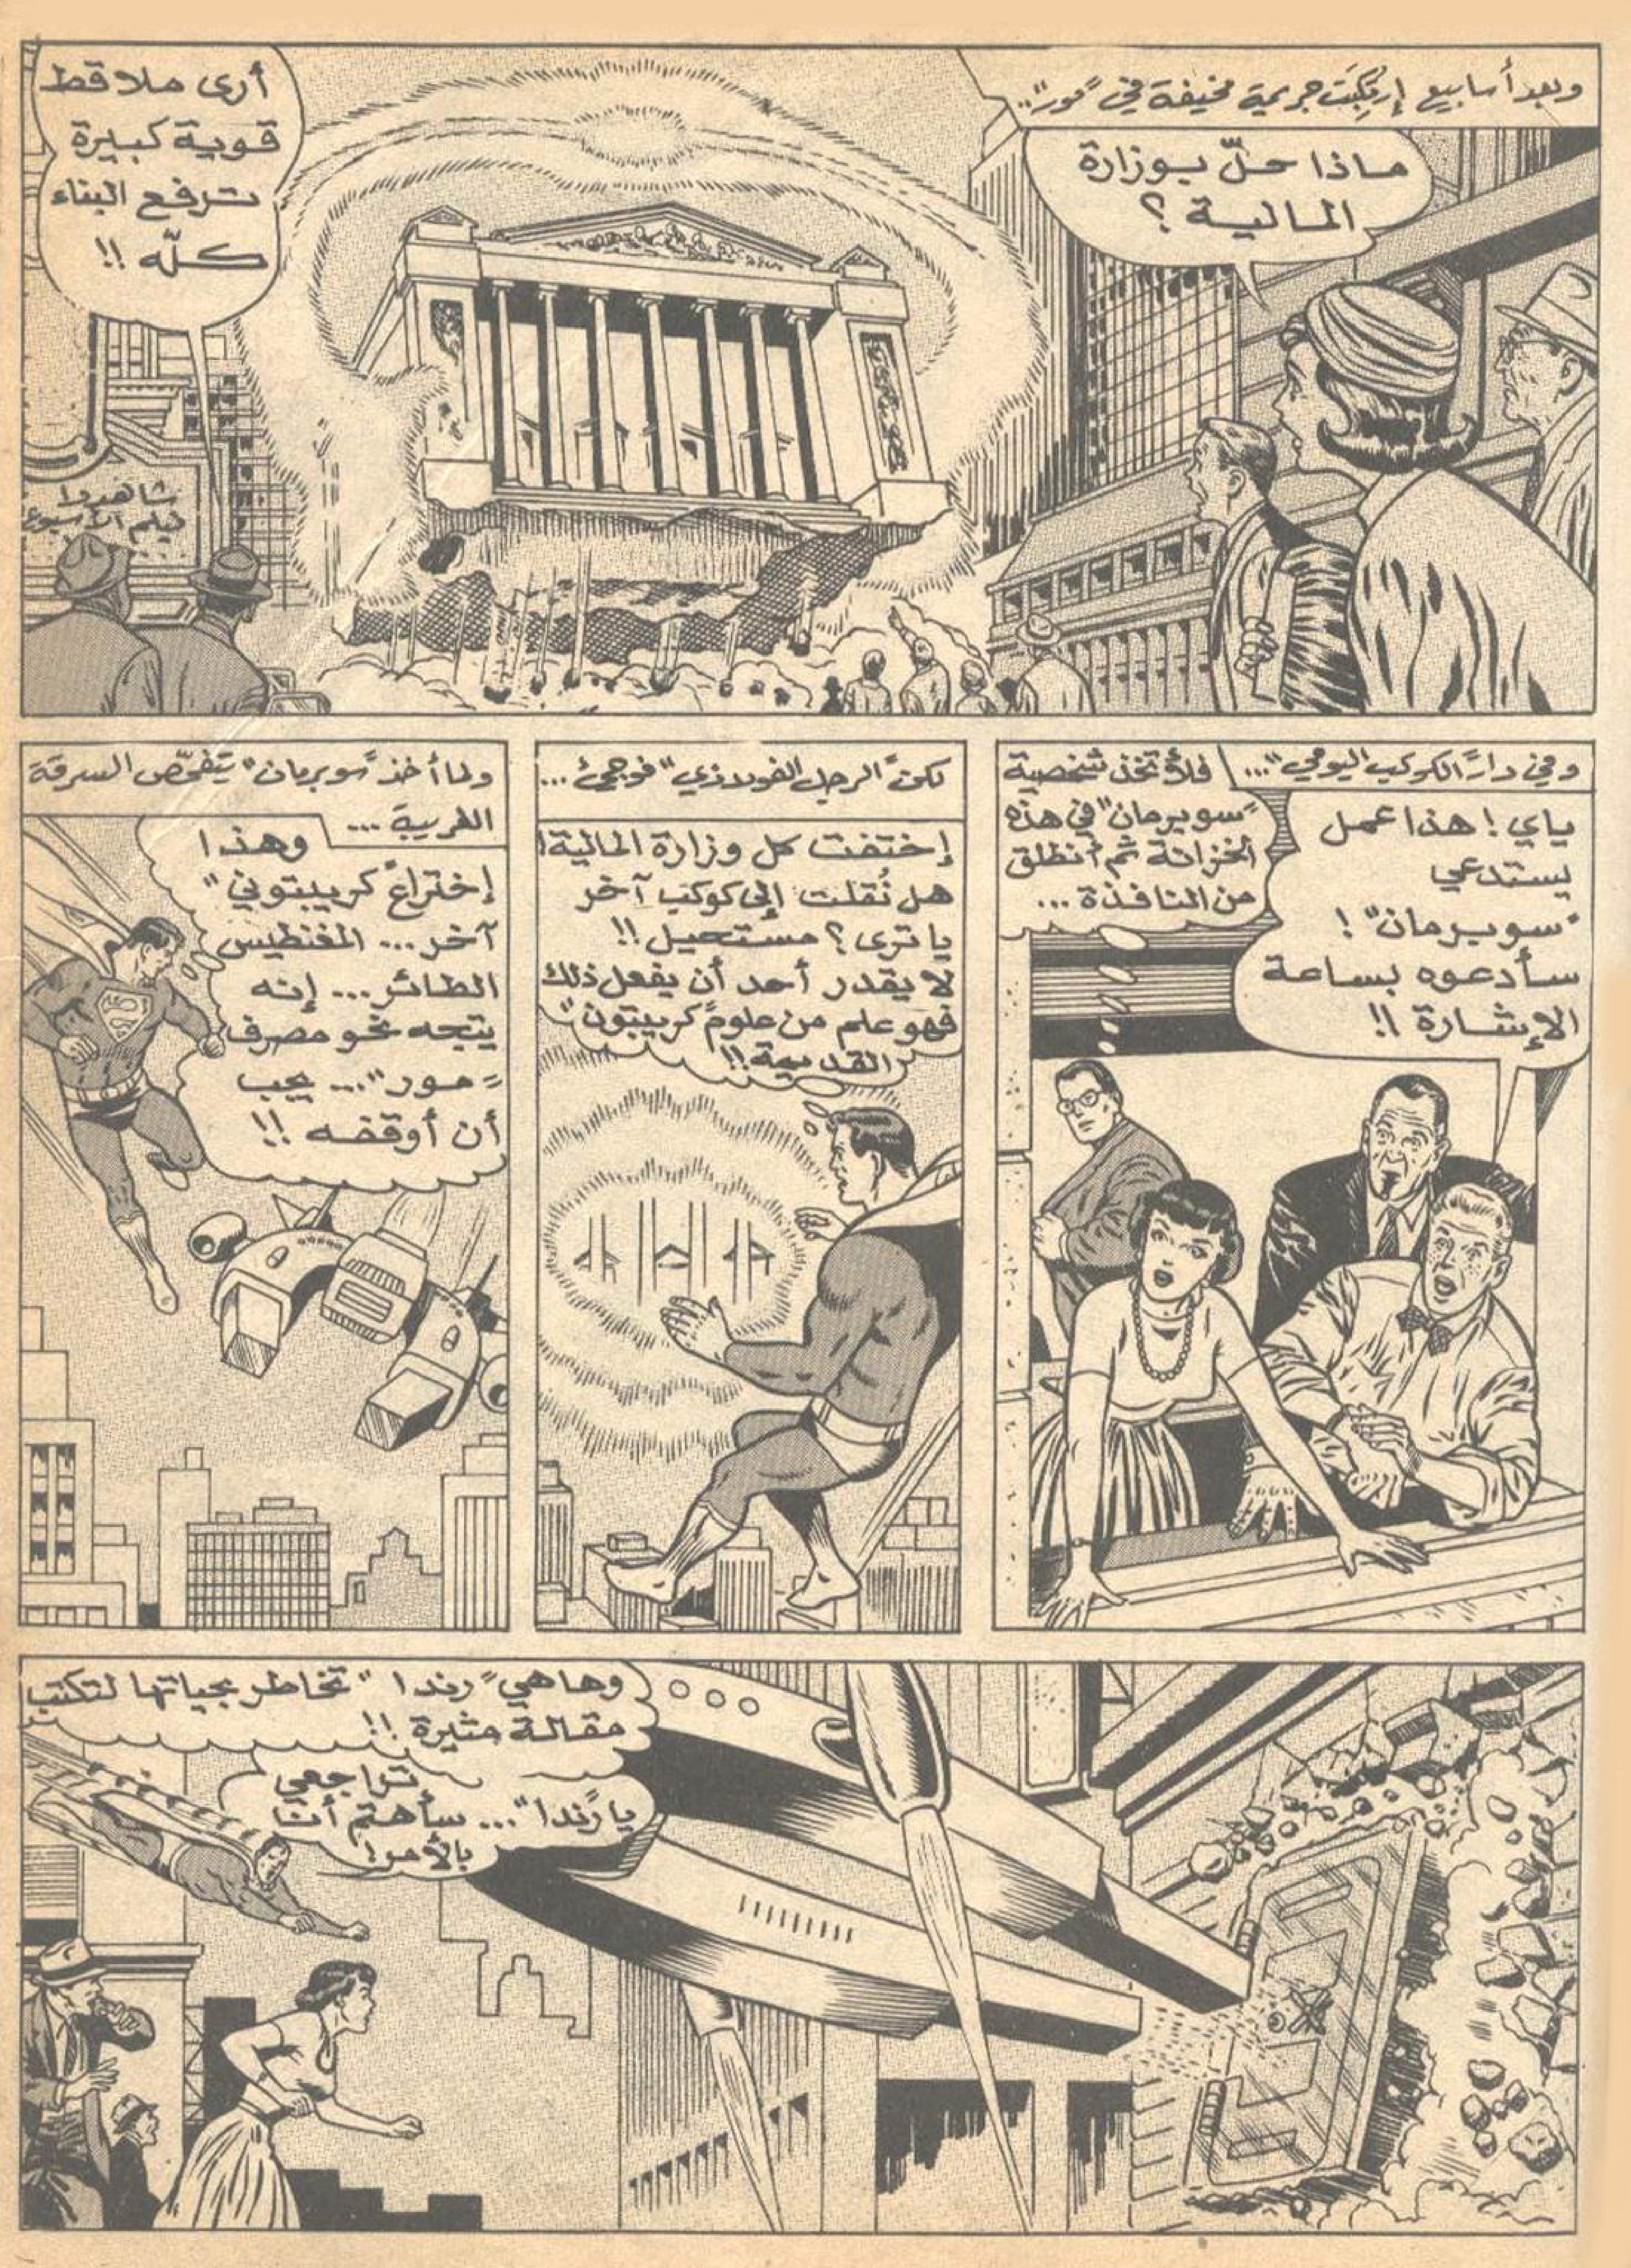 وبعد أسابيع إرتُكِبَت جريمة مخيفة في "مور"..
ماذا حلّ بوزارة
المالية ؟
أرى ملاقط
قوية كبيرة
ترفع البناء
كلّه !!
شاهدوا
فيلم الأسبوع
وفي دار "الكوكب اليومي"...
ياي ! هذا عمل
يستدعي
"سوبرمان" !
سأدعوه بساعة
الإشارة !!
فلأتخذ شخصية
"سوبرمان" في هذه
الخزانة ثم أنطلق
من النافذة ...
لكن "الرجل الفولاذي" فوجئ ...
إختفت كل وزارة المالية !
هل نُقلت إلى كوكب آخر
يا ترى ؟ مستحيل !!
لا يقدر أحد أن يفعل ذلك
فهو علم من علوم "كريبتون"
القديمة !!
ولما أخذ "سوبرمان" يتفحّص السرقة
الغريبة ...
وهذا
إختراع "كريبتوني"
آخر ... المغنطيس
الطائر ... إنه
يتجه نحو مصرف
"مور" ... يجب
أن أوقفه !!
وها هي "رندا" تخاطر بحياتها لتكتب
مقالة مثيرة !!
تراجعي
يا "رندا" ... سأهتم أنا
بالأمر !